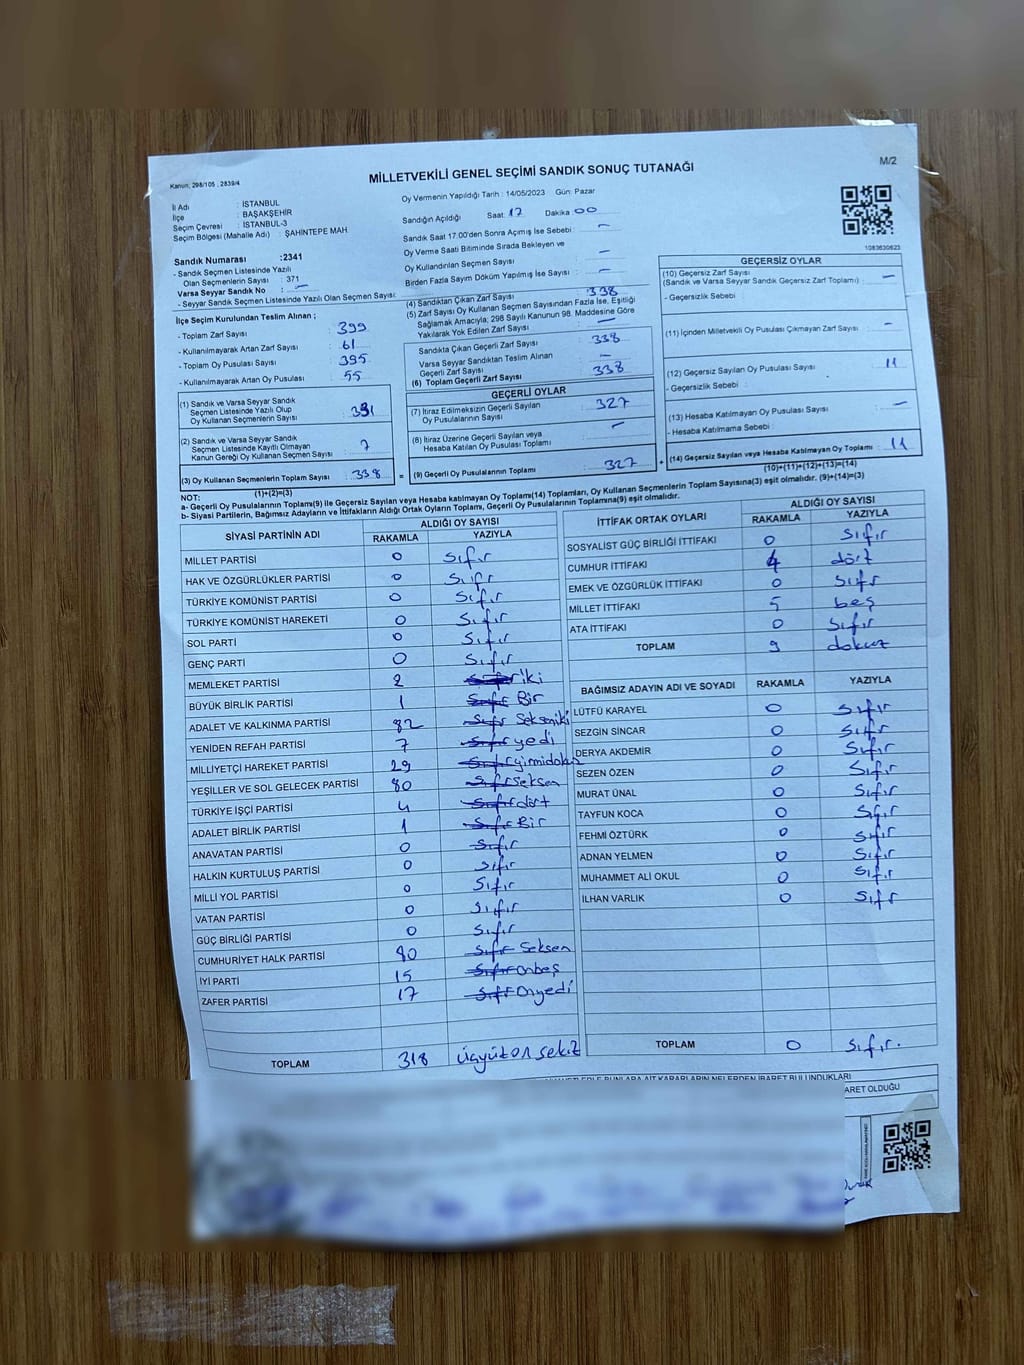 MİLLETVEKİLİ GENEL SEÇİMİ SANDIK SONUÇ TUTANAĞI
M/2
Kanun; 298/105 , 2839/4
İl Adı : İSTANBUL
İlçe : BAŞAKŞEHİR
Seçim Çevresi : İSTANBUL-3
Seçim Bölgesi (Mahalle Adı) : ŞAHİNTEPE MAH.
Oy Vermenin Yapıldığı Tarih : 14/05/2023 Gün: Pazar
Sandığın Açıldığı Saat: 17 Dakika: 00
Sandık Saat 17:00'den Sonra Açılmış İse Sebebi : –
Oy Verme Saati Bitiminde Sırada Bekleyen ve
Oy Kullandırılan Seçmen Sayısı : –
Birden Fazla Sayım Döküm Yapılmış İse Sayısı : –
1083630623
Sandık Numarası : 2341
- Sandık Seçmen Listesinde Yazılı
Olan Seçmenlerin Sayısı : 371
Varsa Seyyar Sandık No : –
- Seyyar Sandık Seçmen Listesinde Yazılı Olan Seçmen Sayısı:
İlçe Seçim Kurulundan Teslim Alınan ;
- Toplam Zarf Sayısı : 399
- Kullanılmayarak Artan Zarf Sayısı : 61
- Toplam Oy Pusulası Sayısı : 395
- Kullanılmayarak Artan Oy Pusulası : 55
(1) Sandık ve Varsa Seyyar Sandık
Seçmen Listesinde Yazılı Olup
Oy Kullanan Seçmenlerin Sayısı : 331
(2) Sandık ve Varsa Seyyar Sandık
Seçmen Listesinde Kayıtlı Olmayan
Kanun Gereği Oy Kullanan Seçmen Sayısı : 7
(3) Oy Kullanan Seçmenlerin Toplam Sayısı : 338
(1)+(2)=(3)
(4) Sandıktan Çıkan Zarf Sayısı : 338
(5) Zarf Sayısı Oy Kullanan Seçmen Sayısından Fazla İse, Eşitliği
Sağlamak Amacıyla; 298 Sayılı Kanunun 98. Maddesine Göre
Yakılarak Yok Edilen Zarf Sayısı : –
Sandıkta Çıkan Geçerli Zarf Sayısı : 338
Varsa Seyyar Sandıktan Teslim Alınan
Geçerli Zarf Sayısı : –
(6) Toplam Geçerli Zarf Sayısı : 338
GEÇERLİ OYLAR
(7) İtiraz Edilmeksizin Geçerli Sayılan
Oy Pusulalarının Sayısı : 327
(8) İtiraz Üzerine Geçerli Sayılan veya
Hesaba Katılan Oy Pusulası Toplamı : –
= (9) Geçerli Oy Pusulalarının Toplamı : 327 +
GEÇERSİZ OYLAR
(10) Geçersiz Zarf Sayısı
(Sandık ve Varsa Seyyar Sandık Geçersiz Zarf Toplamı) : –
- Geçersizlik Sebebi :
(11) İçinden Milletvekili Oy Pusulası Çıkmayan Zarf Sayısı : –
(12) Geçersiz Sayılan Oy Pusulası Sayısı : 11
- Geçersizlik Sebebi :
(13) Hesaba Katılmayan Oy Pusulası Sayısı : –
- Hesaba Katılmama Sebebi :
(14) Geçersiz Sayılan veya Hesaba Katılmayan Oy Toplamı : 11
(10)+(11)+(12)+(13)=(14)
NOT:
a- Geçerli Oy Pusulalarının Toplamı(9) ile Geçersiz Sayılan veya Hesaba katılmayan Oy Toplamı(14) Toplamları, Oy Kullanan Seçmenlerin Toplam Sayısına(3) eşit olmalıdır. (9)+(14)=(3)
b- Siyasi Partilerin, Bağımsız Adayların ve İttifakların Aldığı Ortak Oyların Toplamı, Geçerli Oy Pusulalarının Toplamına(9) eşit olmalıdır.
SİYASİ PARTİNİN ADI ALDIĞI OY SAYISI
RAKAMLA YAZIYLA
MİLLET PARTİSİ 0 Sıfır
HAK VE ÖZGÜRLÜKLER PARTİSİ 0 Sıfır
TÜRKİYE KOMÜNİST PARTİSİ 0 Sıfır
TÜRKİYE KOMÜNİST HAREKETİ 0 Sıfır
SOL PARTİ 0 Sıfır
GENÇ PARTİ 0 Sıfır
MEMLEKET PARTİSİ 2 Sıfır iki
BÜYÜK BİRLİK PARTİSİ 1 Sıfır Bir
ADALET VE KALKINMA PARTİSİ 82 Sıfır Sekseniki
YENİDEN REFAH PARTİSİ 7 Sıfır yedi
MİLLİYETÇİ HAREKET PARTİSİ 29 Sıfır yirmidokuz
YEŞİLLER VE SOL GELECEK PARTİSİ 80 Sıfır seksen
TÜRKİYE İŞÇİ PARTİSİ 4 Sıfır dört
ADALET BİRLİK PARTİSİ 1 Sıfır Bir
ANAVATAN PARTİSİ 0 Sıfır
HALKIN KURTULUŞ PARTİSİ 0 Sıfır
MİLLİ YOL PARTİSİ 0 Sıfır
VATAN PARTİSİ 0 Sıfır
GÜÇ BİRLİĞİ PARTİSİ 0 Sıfır
CUMHURİYET HALK PARTİSİ 80 Sıfır Seksen
İYİ PARTİ 15 Sıfır onbeş
ZAFER PARTİSİ 17 Sıfır Onyedi
TOPLAM 318 üçyüz on sekiz
İTTİFAK ORTAK OYLARI ALDIĞI OY SAYISI
RAKAMLA YAZIYLA
SOSYALİST GÜÇ BİRLİĞİ İTTİFAKI 0 Sıfır
CUMHUR İTTİFAKI 4 dört
EMEK VE ÖZGÜRLÜK İTTİFAKI 0 Sıfır
MİLLET İTTİFAKI 5 beş
ATA İTTİFAKI 0 Sıfır
TOPLAM 9 dokuz
BAĞIMSIZ ADAYIN ADI VE SOYADI RAKAMLA YAZIYLA
LÜTFÜ KARAYEL 0 Sıfır
SEZGİN SİNCAR 0 Sıfır
DERYA AKDEMİR 0 Sıfır
SEZEN ÖZEN 0 Sıfır
MURAT ÜNAL 0 Sıfır
TAYFUN KOCA 0 Sıfır
FEHMİ ÖZTÜRK 0 Sıfır
ADNAN YELMEN 0 Sıfır
MUHAMMET ALİ OKUL 0 Sıfır
İLHAN VARLIK 0 Sıfır
TOPLAM 0 Sıfır.
KARARLARIN NELERDEN İBARET BULUNDUKLARI
ARET OLDUĞU